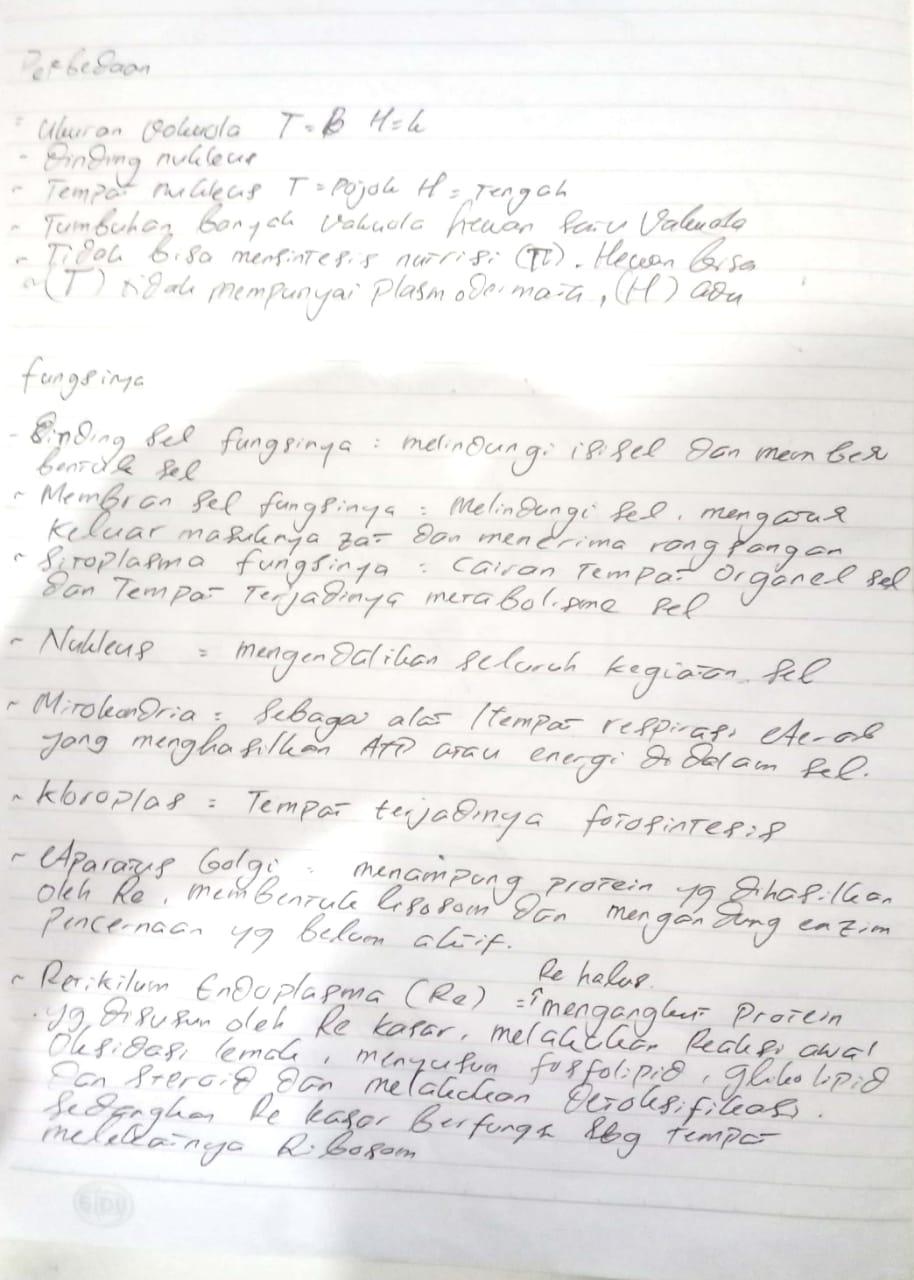 Perbedaan
- Ukuran Vakuola T = B H = k
- Dinding nukleus
- Tempat nukleus T = Pojok H = Tengah
- Tumbuhan banyak Vakuola hewan satu Vakuola
- Tidak bisa mensintesis nutrisi (T). Hewan bisa
- (T) tidak mempunyai Plasmodermata, (H) ada
fungsinya
- Dinding sel fungsinya : melindungi isi sel dan member
bentuk sel
- Membran sel fungsinya : Melindungi sel, mengatur
keluar masuknya zat dan menerima rangsangan
- Sitoplasma fungsinya : Cairan Tempat Organel sel
dan Tempat Terjadinya metabolisme sel
- Nukleus = mengendalikan seluruh kegiatan sel
- Mitokondria : Sebagai alat / tempat respirasi Aerob
yang menghasilkan ATP atau energi di dalam sel.
- kloroplas = Tempat terjadinya fotosintesis
- Aparatus Golgi : menampung protein yg dihasilkan
oleh Re, membentuk lisosom dan mengandung enzim
Pencernaan yg belum aktif.
Re halus
- Retikilum Endoplasma (Re) = mengangkut Protein
yg disusun oleh Re kasar, melakukan Reaksi awal
Oksidasi lemak, menyusun fosfolipid, glikolipid
dan Steroid dan melakukan Detoksifikasi.
sedangkan Re kasar Berfungsi sbg tempat
melekatnya Ribosom
SIDU